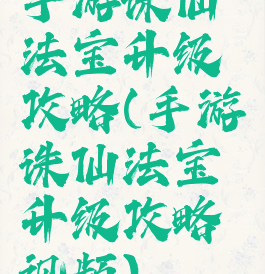 手游诛仙
法宝升级
攻略(手游
诛仙法宝
升级攻略
视频)